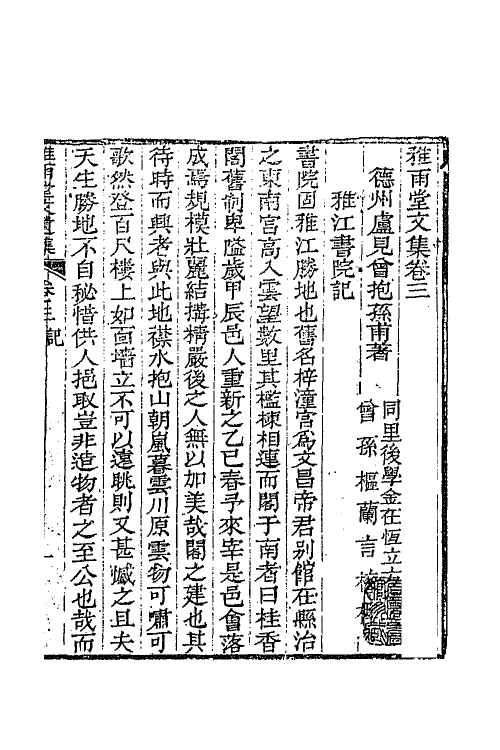 雅雨堂文集卷三
德州盧見曾抱孫甫著
同里後學金在恆立方
曾孫樞蘭言
雅江書院記
書院固雅江勝地也舊名梓潼宮為文昌帝君別館在縣治
之東南宮高入雲望數里其檻棟相連而閣于南者曰桂香
閣舊制卑隘歲甲辰邑人重新之乙巳春予來宰是邑會落
成焉規模壯麗結搆精嚴後之人無以加美哉閣之建也其
待時而興者與此地襟水抱山朝嵐暮雲川原雲物可嘯可
歌然登百尺樓上如面墻立不可以遠眺則又甚憾之且夫
天生勝地不自秘惜供人挹取豈非造物者之至公也哉而
雅雨堂文集
卷三 記
一